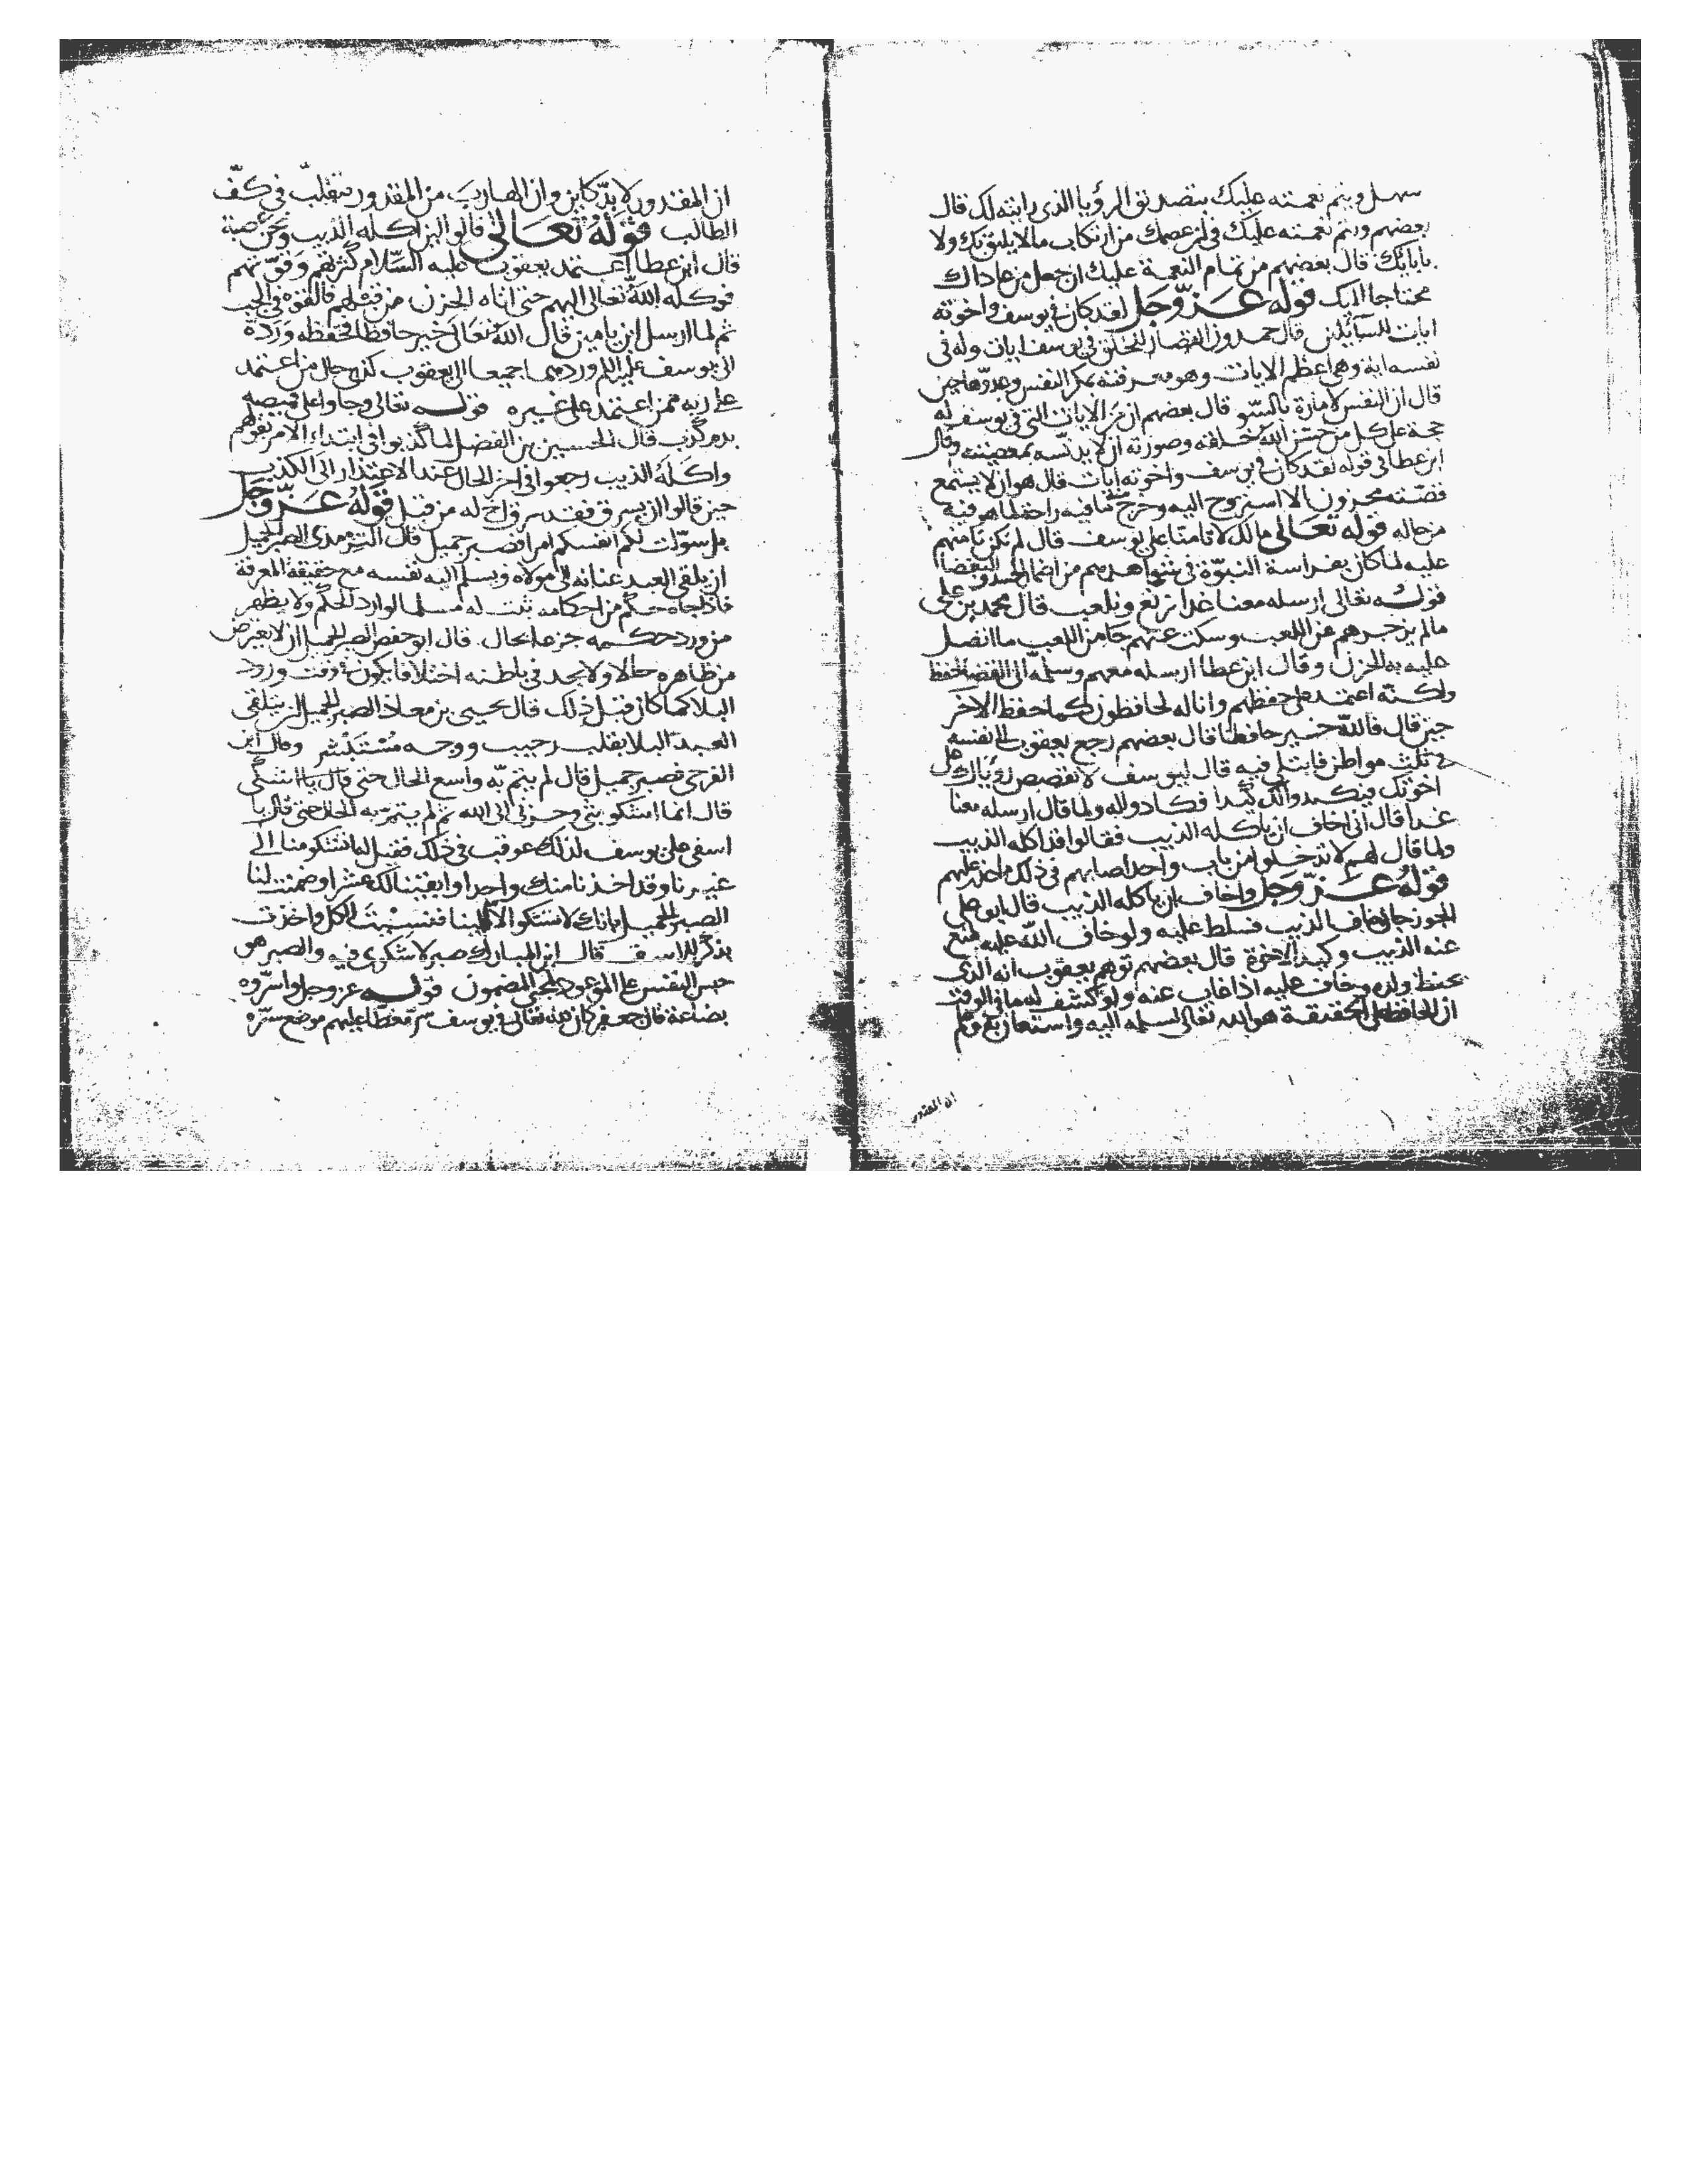 سهل ويتم نعمته عليك بتصديق الرؤيا الذى رايته لك قال
بعضهم ويتم نعمته عليك فى ان عصمك من ارتكاب ما لا يليق بك ولا
بابائك قال بعضهم من تمام النعمة عليك ان جعل من عاداك
محتاجا اليك قوله عز وجل لقد كان فى يوسف واخوته
ايات للسائلين قال حمدون القصار للخلق فى يوسف ايات وله فى
نفسه اية وهى اعظم الايات وهو معرفته بمكر النفس وغدرها حين
قال ان النفس لامارة بالسو قال بعضهم ان من الايات التى فى يوسف انه
حجة على كل من حسن الله خلقه وصورته ان لا يدنسه بمعصيته وقال
ابن عطا فى قوله لقد كان فى يوسف واخوته ايات قال هو ان لا يستمع
قصته محزون الا استروح اليه وخرج مما فيه راحة لما هو فيه
من حاله قوله تعالى مالك لا تامنا على يوسف قال لم تكن تامنهم
عليه لما كان بفراسة النبوة فى شواهدهم من اضمار الحسد
قوله تعالى ارسله معنا غدا نرتع ونلعب قال محمد بن على
ما لم يزجرهم عن اللعب وسكت عنهم جا من اللعب ما اتصل
عليه به الحزن وقال ابن عطا ارسله معهم وسلمه الى القضا لحفظ
ولكنه اعتمد على حفظهم وانا له لحافظون كما حفظ الاخر
حين قال فالله خير حافظا قال بعضهم رجع يعقوب الى نفسه
فى ثلث مواطن فابتلى فيه قال ليوسف لا تقصص رؤياك على
اخوتك فيكيدوا لك كيدا فكادوا له ولما قال ارسله معنا
غدا قال انى اخاف ان ياكله الذيب فقالوا قد اكله الذيب
ولما قال لهم لا تدخلوا من باب واحد اصابهم فى ذلك ما حذر عليهم
قوله عز وجل واخاف ان ياكله الذيب قال ابو على
الجوزجانى خاف الذيب فسلط عليه ولو خاف الله عليه لمنع
عنه الذيب وكيد الاخوة قال بعضهم توهم يعقوب انه الذى
يحفظ ولده وخاف عليه اذا غاب عنه ولو كشف له ما فى الوقت
ان الحافظ على الحقيقة هو الله تعالى لسلمه اليه واستعان به وعلم
ان المقدور
ان المقدور لا بد كاين وان الهارب من المقدور يتقلب فى كف
الطالب قوله تعالى قالوا لين اكله الذيب ونحن عصبة
قال ابن عطا اعتمد يعقوب عليه السلام كثرتهم وقوتهم
فوكله الله تعالى اليهم حتى اتاه الحزن من قبلهم فالقوه فى الجب
ثم لما ارسل ابن يامين قال الله تعالى خير حافظا فحفظه ورده
الى يوسف عليه السلم وردهما جميعا الى يعقوب كذى حال من اعتمد
على ربه ممن اعتمد على غيره قوله تعالى وجاوا على قميصه
بدم كذب قال الحسين بن الفضل لما كذبوا فى ابتداء الامر بقولهم
واكله الذيب رجعوا فى اخر الحال عند الاعتذار الى الكذب
حين قالوا ان يسرق فقد سرق اخ له من قبل قوله عز وجل
بل سولت لكم انفسكم امرا فصبر جميل قال الترمذى الصبر الجميل
ان يلقى العبد عنانه الى مولاه ويسلم اليه نفسه مع حقيقة المعرفة
فاذا جاه حكم من احكامه ثبت له مسلما لوارد الحكم ولا يظهر
من ورود حكمه جزعا بحال قال ابو حفص الصبر الجميل ان لا يعترض
من ظاهره حالا ولا يجد فى باطنه اختلافا يكون فى وقت ورود
البلا كما كان قبل ذلك قال يحيى بن معاذ الصبر الجميل ان يتلقى
العبد البلا بقلب رحيب ووجه مستبشر وقال ابن
الفرجى فصبر جميل قال لم يتم به واسع الحال حتى قال يا اشتكى
قال انما اشكو بثى وحزنى الى الله ثم لم يتم به الحال حتى قال يا
اسفى على يوسف لذلك عوقب فى ذلك فقيل له تشكو منا الى
غيرنا وقد اخذنا منك واحدا وابقينا لك عشرا وضمنت لنا
الصبر الجميل بانك لا تشكو الا الينا فنسيت الكل واخذت
بذكر الاسف قال ابن المبارك صبر لا شكوى فيه والصبر هو
حبس النفس على الموعود المضمون قوله عز وجل واسروه
بضاعة قال جعفر كان لله تعالى فى يوسف سر فغطا عليهم موضع سره